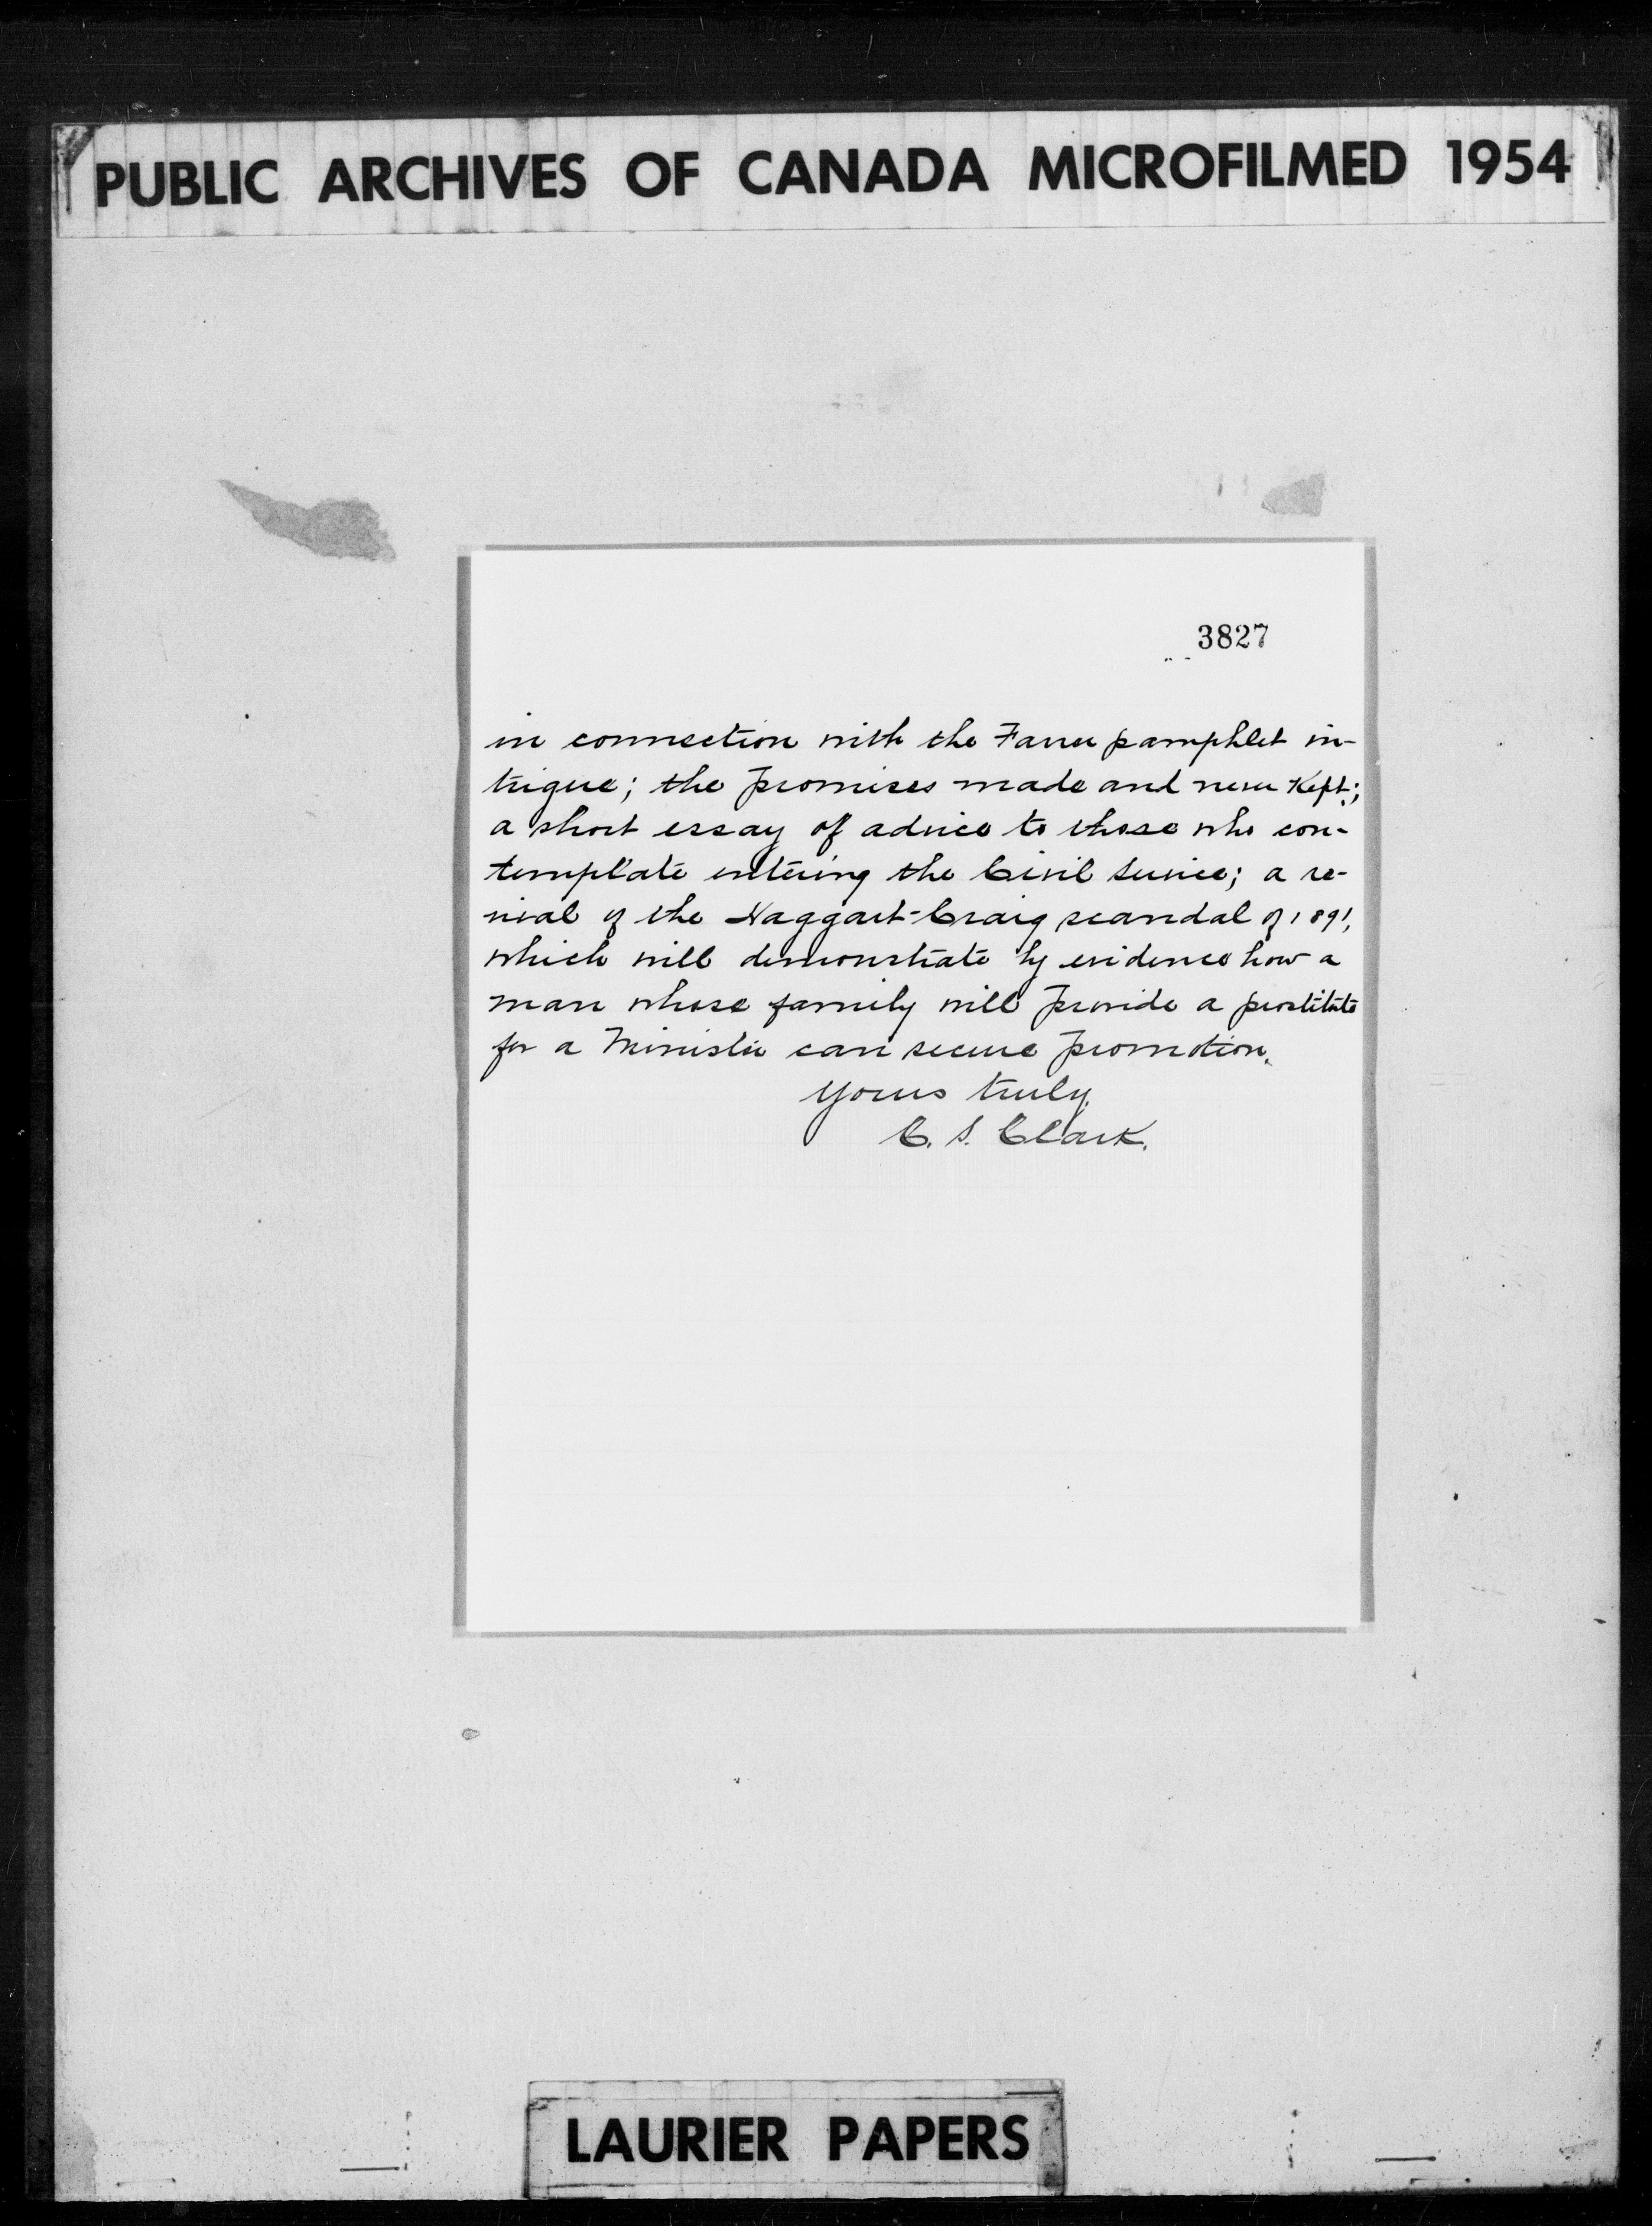 PUBLIC ARCHIVES OF CANADA MICROFILMED 1954
3827
in connection with the Farrer pamphlet in-
trigue; the promises made and never kept;
a short essay of advice to those who con-
template entering the Civil Service; a re-
vival of the Haggart-Craig scandal of 1891,
which will demonstrate by evidence how a
man whose family will provide a prostitute
for a Minister can secure promotion.
Yours truly,
C. S. Clark.
LAURIER PAPERS